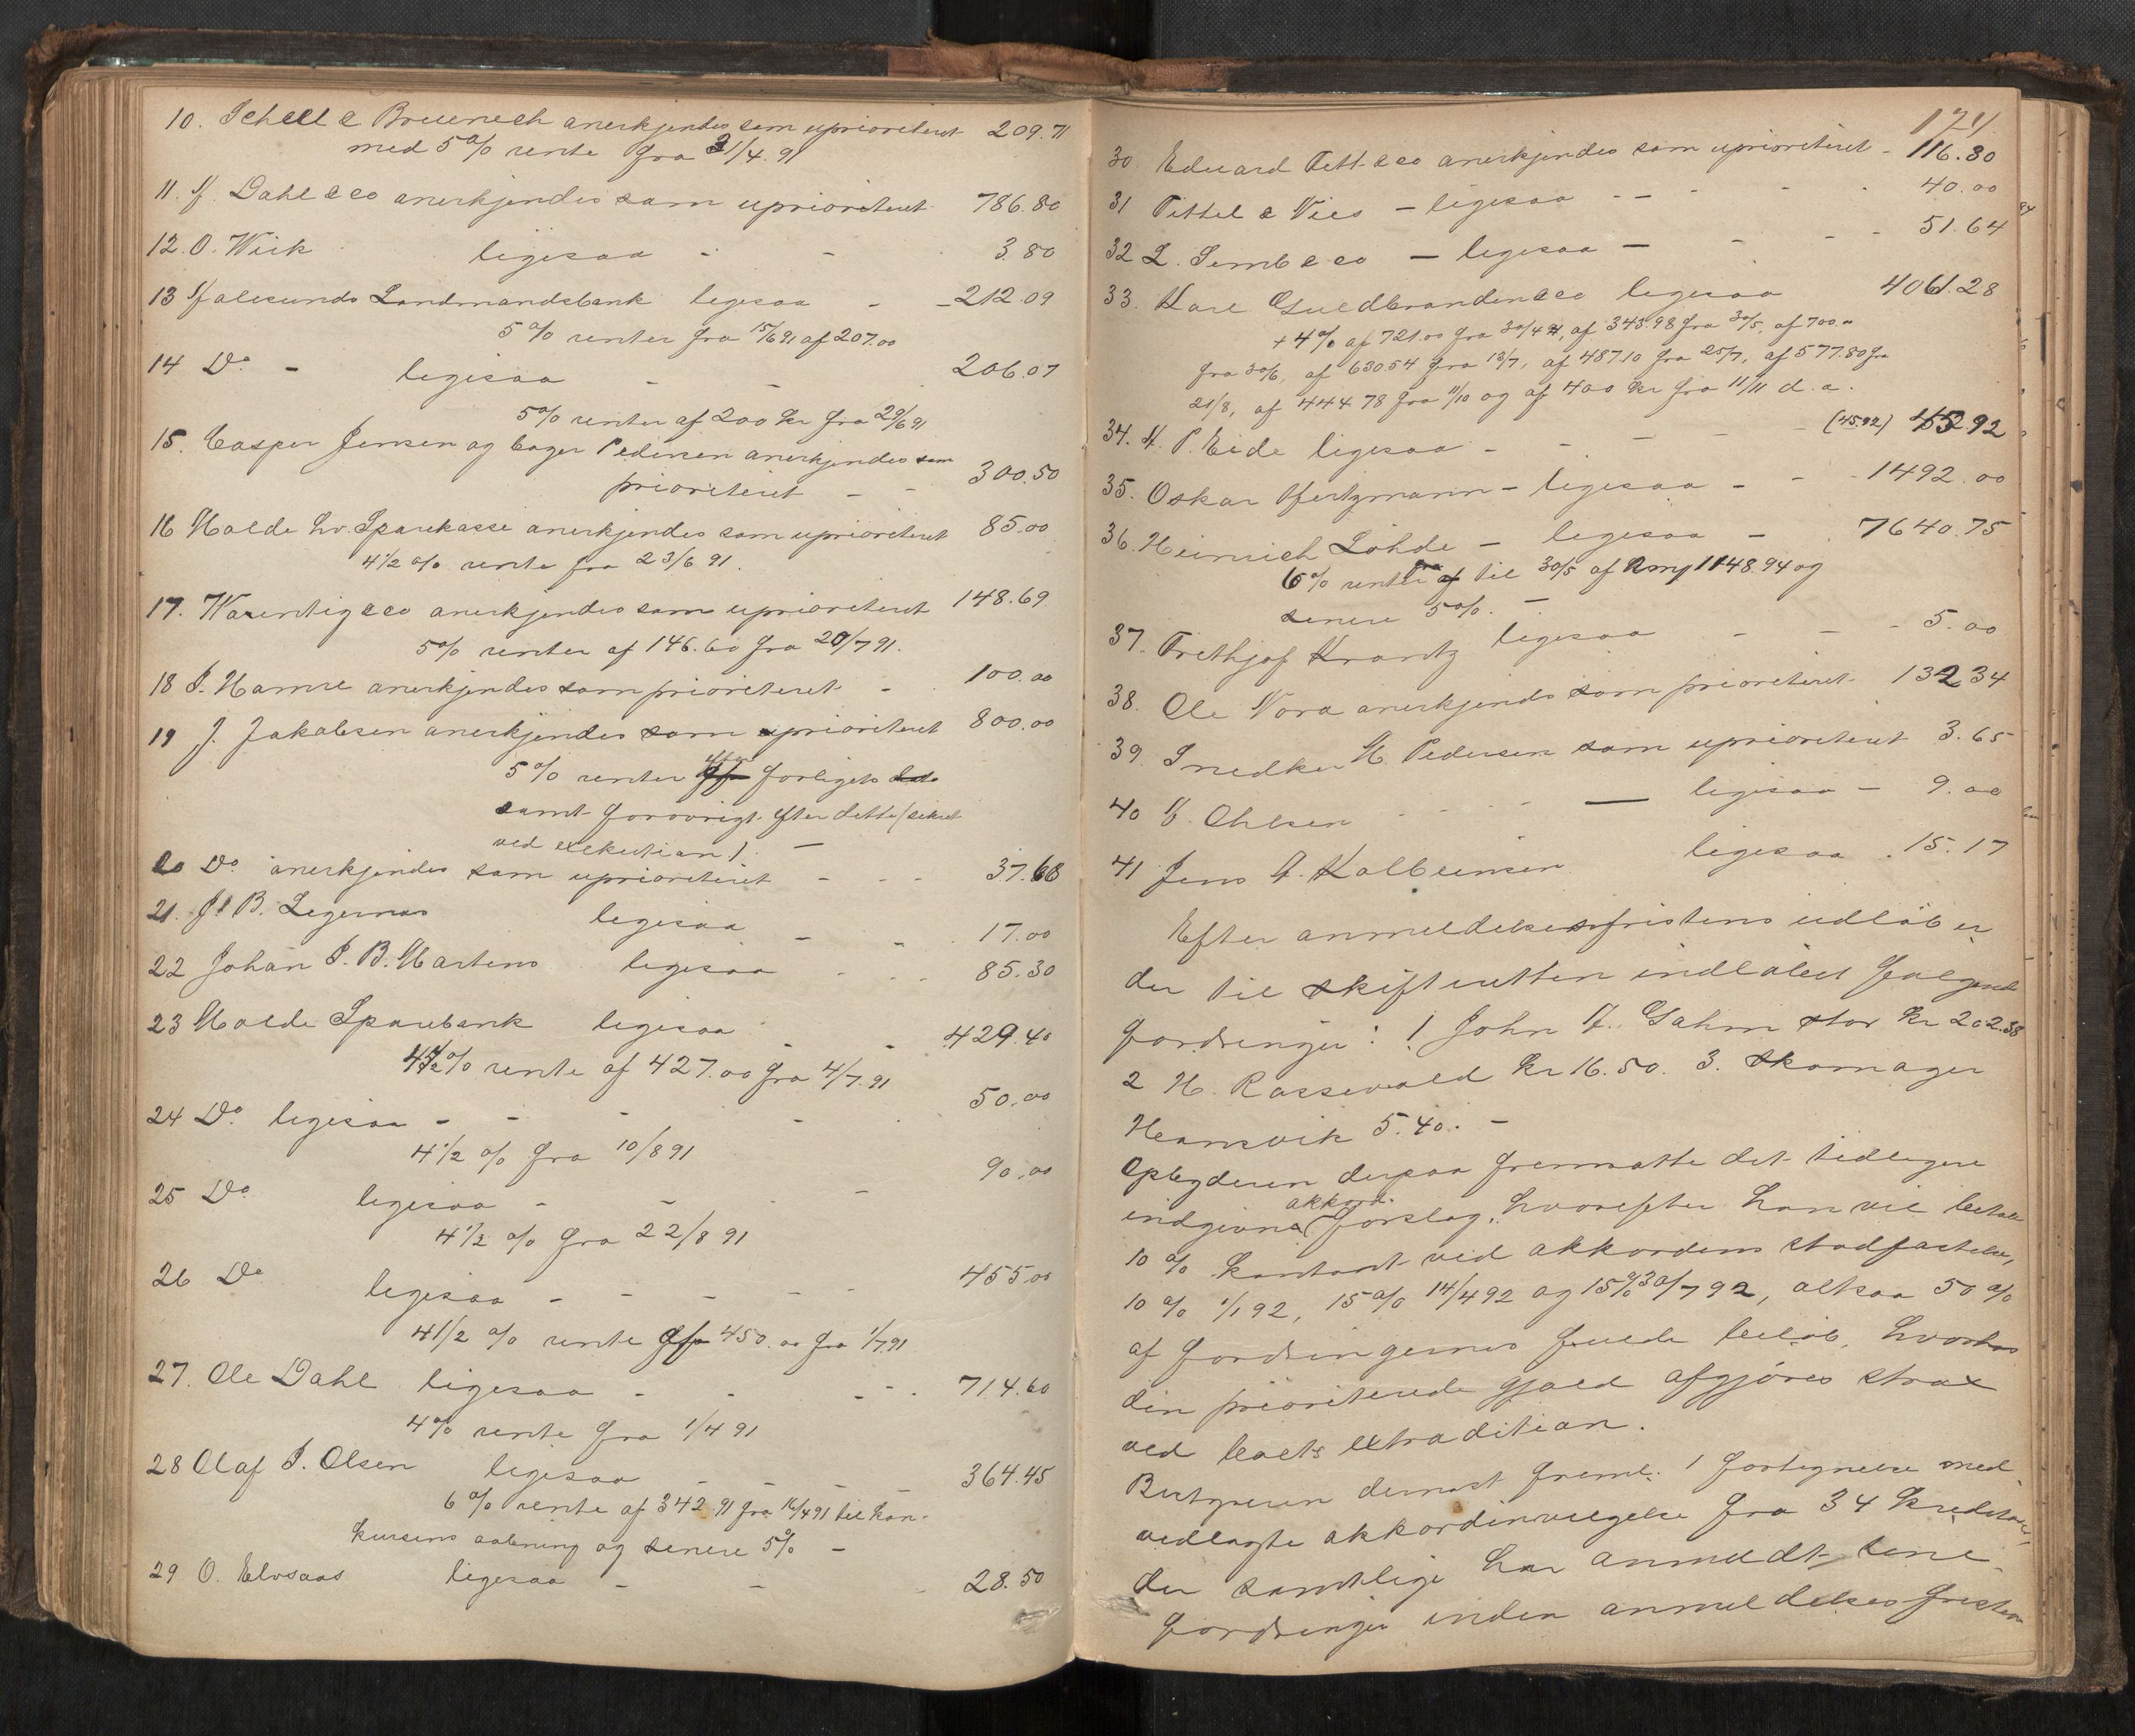 10. Schell & Breuneck anerkjendes som uprioriteret 209.71
med 5% rente fra 21/4. 91
11. Dahl & co anerkjendes som uprioriteret 786.80
12. O. Wiik ligesaa - - 3.80
13 Aalesunds Landmandsbank ligesaa - - 212.09
5% renter fra 15/6 91 af 207.00
14 Do - ligesaa - - 206.07
5% renter af 200 kr fra 29/6 91
15. Casper Jensen og Pedersen anerkjendes som
prioriteret - - 300.50
16 Molde Sparekasse anerkjendes som uprioriteret 85.00
4 1/2 % rente fra 23/6 91.
17. Warentig & co anerkjendes som uprioriteret 148.69
5% renter af 146.60 fra 20/7 91.
18 J. Hamre anerkjendes som prioriteret - 100.00
19 J. Jakobsen anerkjendes som uprioriteret 800.00
5% renter efter forligets
samt forøvrigt efter dette (sikret
ved exekution). -
20 Do anerkjendes som uprioriteret - - - 37.68
21. B. Legernes ligesaa - - 17.00
22 Johan J. B. Martens ligesaa - - - 85.30
23 Molde Sparebank ligesaa - - 429.40
4 1/2 % rente af 427.00 fra 4/7.91
24 Do ligesaa - - - - 50.00
4 1/2 % fra 10/8 91
25 Do ligesaa - - - - 90.00
4 1/2 % fra 22/8 91
26 Do ligesaa - - - - - 455.00
4 1/2 % rente af 450.00 fra 1/7 91
27. Ole Dahl ligesaa - - - - 714.60
4% rente fra 1/4 91
28 Olaf J. Olsen ligesaa - - - 364.45
6% rente af 342.91 fra 16/4 91 til kon-
kursens aabning og senere 5% -
29 O. Elvsaas ligesaa - - 28.50
171
30. Eduard Tett & co anerkjendes som uprioriteret - 116.30
31 Tettel & Vies - ligesaa - - - - 40.00
32 L. Semb & co - ligesaa - - - - 51.64
33. Karl Guldbrandsen & co ligesaa 4061.28
+ 4% af 721.00 fra 30/4 91, af 343.98 fra 30/5, af 700.00
fra 30/6, af 630.54 fra 13/7, af 487.10 fra 25/7, af 577.80 fra
21/8, af 444.78 fra 1/10 og af 400 kr fra 11/11 d. a.
34. P. Eide ligesaa - - - - (45.92) 45.92
35. Oskar Hertzmann - ligesaa - - - 1492.00
36. Heinrich Löhde - ligesaa - 7640.75
6% renter fra til 30/5 af Rm 1148.94 og
senere 5%. -
37. Frithjof Krantz ligesaa - - - 5.00
38. Ole Vora anerkjendes som prioriteret - 132.34
39. Snedker M. Pedersen som uprioriteret 3.65
40 Ohlsen - - - ligesaa - 9.00
41 Jens A. Kolbeinsen ligesaa . 15.17
Efter anmeldelsesfristens udløb er
der til skifteretten indløbet følgende
fordringer: 1 John Gahm stor kr 202.38
2 H. Rassevold kr 16.50. 3. Skomager
Heansvik 5.40. -
Opbyderen derpaa fremsatte det tidligere
indgivne akkordforslag, hvorefter han vil betale
10% kontant ved akkordens stadfæstelse,
10% 1/1 92, 15% 14/4 92 og 15% 30/7 92, altsaa 50%
af fordringernes fulde beløb, hvorhos
den prioriterede gjæld afgjøres strax
ved boets extradition.
Bestyreren dernæst freml. 1 fortegnelse med
vedlagte akkordindvilgelse fra 34 kreditorer,
der samtlige har anmeldt sine
fordringer inden anmeldelsesfristen